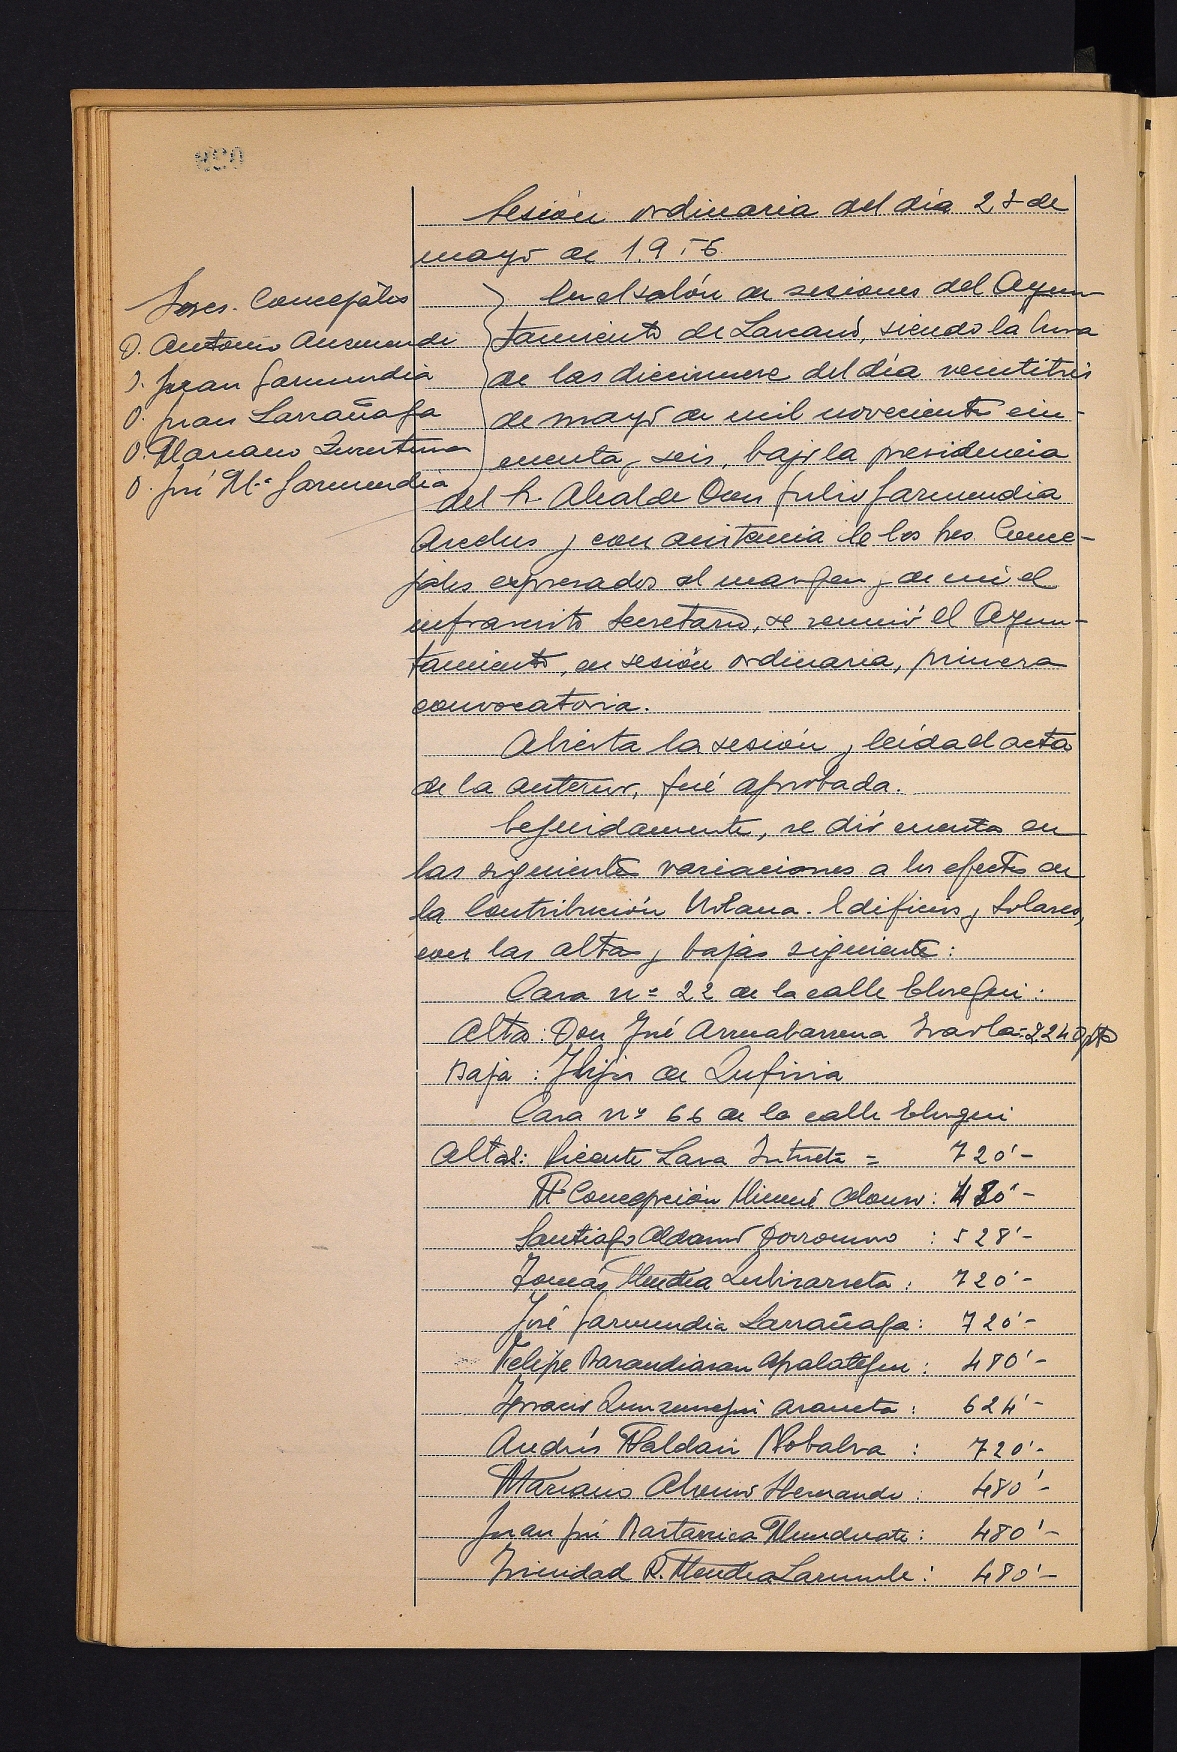 Sesión ordinaria del día 23 de
mayo de 1.956
Sres. Concejales
D. Antonio Ausmendi
D. Juan Garmendia
D. Juan Larrañaga
D. Mariano
D. José Mª Garmendia
En el salón de sesiones del Ayun-
tamiento de Lazcano, siendo la hora
de las diecinueve del día veintitrés
de mayo de mil novecientos cin-
cuenta y seis, bajo la presidencia
del Sr. Alcalde Don Julio Garmendia
y con asistencia de los Sres Conce-
jales expresados al margen y de mí el
infrascrito Secretario, se reunió el Ayun-
tamiento, en sesión ordinaria, primera
convocatoria.
Abierta la sesión y leída el acta
de la anterior, fué aprobada.
Seguidamente, se dió cuenta de
las siguientes variaciones a los efectos de
la Contribución Urbana. Edificios y Solares,
con las altas y bajas siguientes:
Casa nº 22 de la calle Elosegui.
Alta: Don José Arruabarrena
Baja: Hijos de
Casa nº 66 de la calle Elosegui
Altas: Vicente Lasa = 720'-
Mª Concepción Alonso: 480'-
Santiago Aldasoro Dorronsoro : 528'-
Tomás Mendia Zubizarreta : 720'-
José Garmendia Larrañaga: 720'-
Felipe Barandiaran Apalategui : 480'-
Ignacio Zunzunegui Araneta : 624'-
Andrés : 720'-
Mariano Hernando : 480'-
Juan José Bastarrica Munduate : 480'-
Trinidad R. Mendia : 480'-